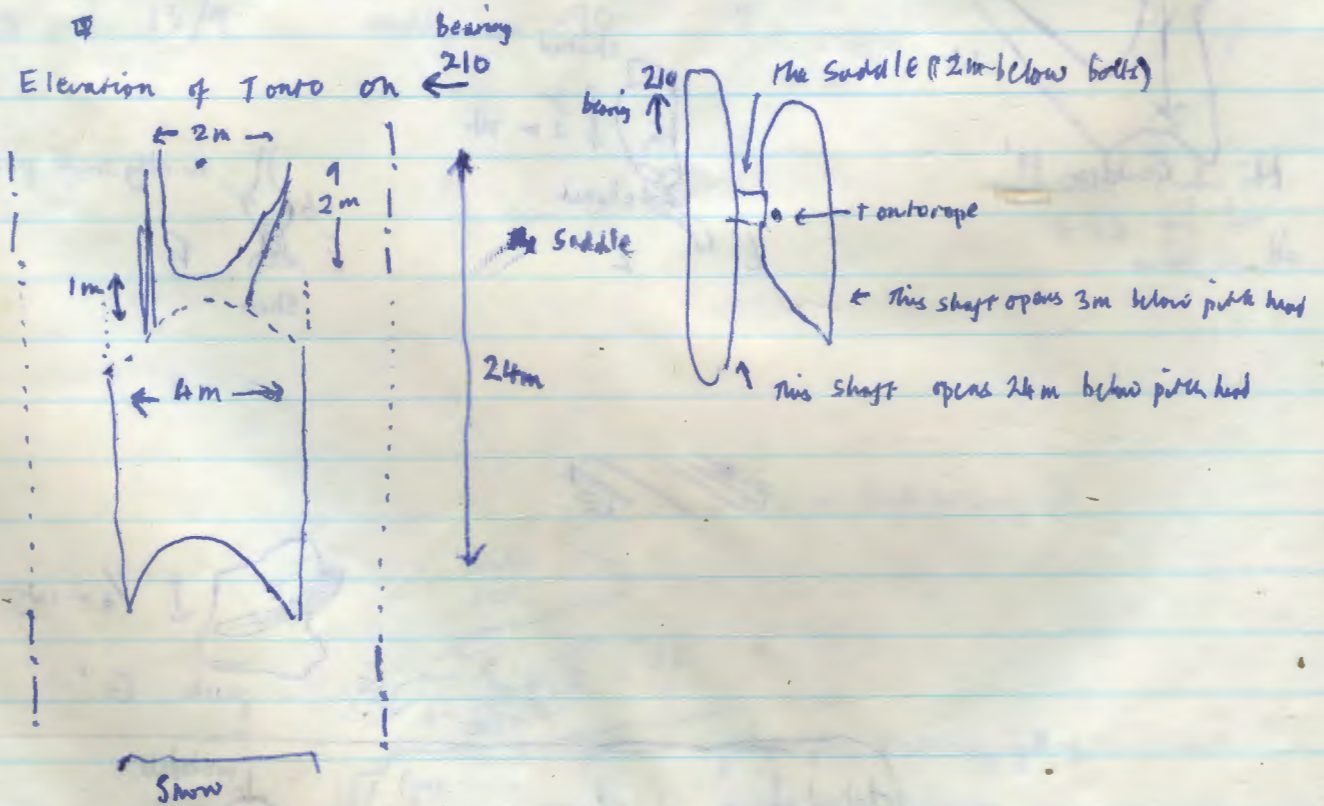 Elevation of Tonto on ←
bearing
210
2m
2m
1m
the Saddle
4m
24m
Snow
bearing
210
the Saddle (2m below bolts)
Tonto rope
← This shaft opens 3m below pitch head
This shaft opens 24m below pitch head